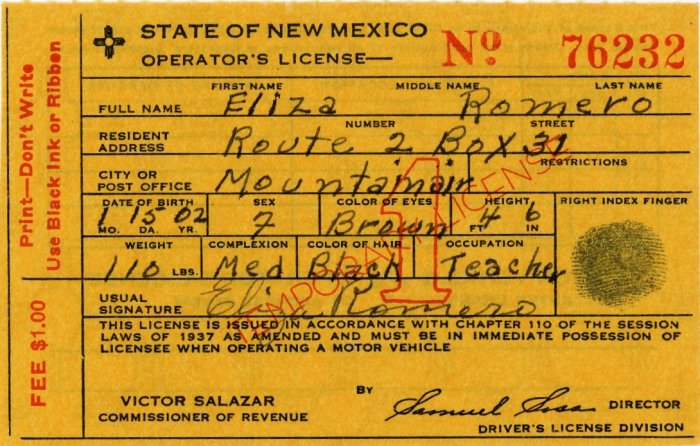 STATE OF NEW MEXICO
OPERATOR'S LICENSE—
No 76232
Print—Don't Write
Use Black Ink or Ribbon
FEE $1.00
FIRST NAME MIDDLE NAME LAST NAME
FULL NAME Eliza Romero
NUMBER STREET
RESIDENT ADDRESS Route 2 Box 31
CITY OR POST OFFICE Mountainair
RESTRICTIONS
DATE OF BIRTH SEX COLOR OF EYES HEIGHT RIGHT INDEX FINGER
1 15 02 7 Brown 4 6
MO. DA. YR. FT IN
WEIGHT COMPLEXION COLOR OF HAIR OCCUPATION
110 LBS. Med Black Teacher
TEMPORARY LICENSE
1
USUAL SIGNATURE Eliza Romero
THIS LICENSE IS ISSUED IN ACCORDANCE WITH CHAPTER 110 OF THE SESSION
LAWS OF 1937 AS AMENDED AND MUST BE IN IMMEDIATE POSSESSION OF
LICENSEE WHEN OPERATING A MOTOR VEHICLE
VICTOR SALAZAR
COMMISSIONER OF REVENUE
BY Samuel Sosa DIRECTOR
DRIVER'S LICENSE DIVISION